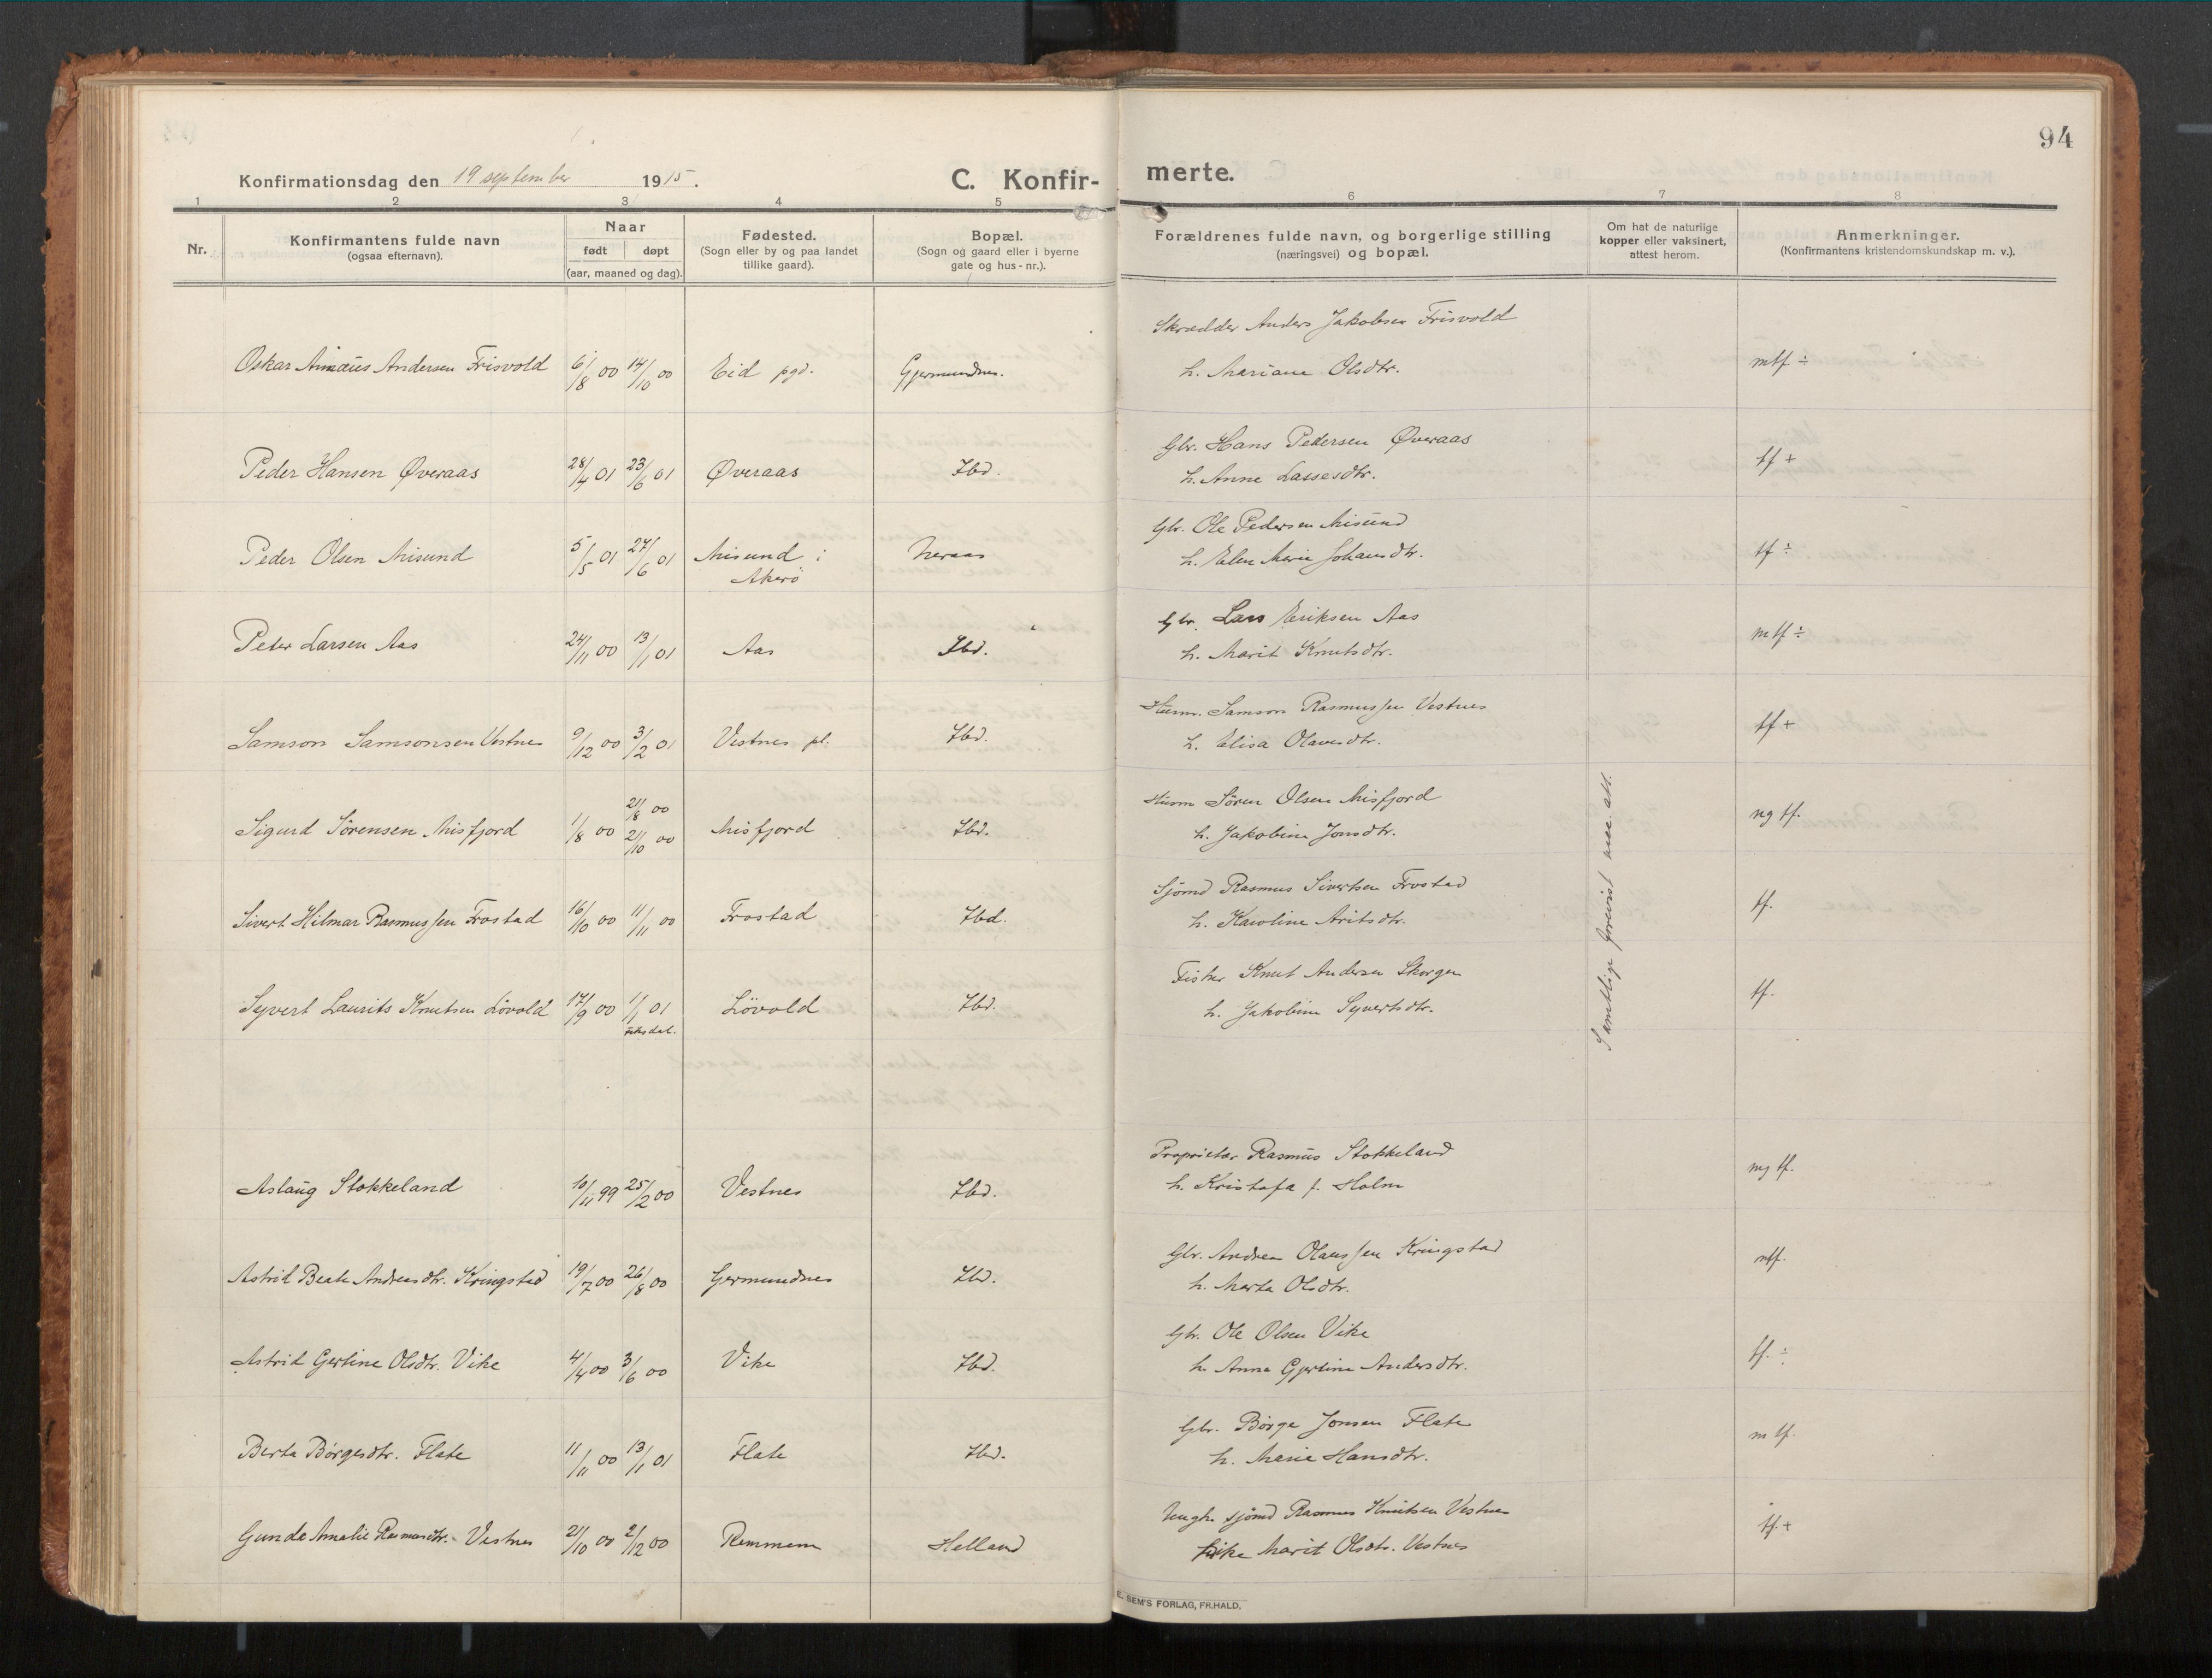 94
Konfirmationsdag den 19 september 1915.
C. Konfirmerte.
1 2 3 4 5 6 7 8
Nr.
Konfirmantens fulde navn
(ogsaa efternavn).
Naar
født døpt
(aar, maaned og dag).
Fødested.
(Sogn eller by og paa landet
tillike gaard).
Bopæl.
(Sogn og gaard eller i byerne
gate og hus-nr.).
Forældrenes fulde navn, og borgerlige stilling
(næringsvei) og bopæl.
Om hat de naturlige
kopper eller vaksinert,
attest herom.
Anmerkninger.
(Konfirmantens kristendomskundskap m. v.).
Skrædder Anders Jakobsen Frisvold
Oskar Andersen Frisvold 6/8 00 14/10 00 Eid pgd. Gjermundnes. h. Mariane Olsdtr. mtf. ÷
Gbr. Hans Pedersen Øveraas
Peder Hansen Øveraas 28/4 01 23/6 01 Øveraas Ibd. h. Anne Lassesdtr. tf +
Gbr. Ole Pedersen Misund
Peder Olsen Misund 5/5 01 27/6 01 Misund i Neraas h. Elen Marie Johansdtr. tf ÷
Akerö
Gbr. Lars Eriksen Aas
Peter Larsen Aas 24/11 00 13/1 01 Aas Ibd. h. Marit Knutsdtr. mtf ÷
Husm. Samson Rasmussen Vestnes
Samson Samsonsen Vestnes 9/12 00 3/2 01 Vestnes pl. Ibd. h. Elisa Olavesdtr. tf +
Husm Sören Olsen Misfjord
21/8 00
Sigurd Sörensen Misfjord 1/8 00 21/10 00 Misfjord Ibd. h. Jakobine Jonsdtr. mg tf.
Sjömd Rasmus Sivertsen Frostad
Sivert Hilmar Rasmussen Frostad 16/10 00 11/11 00 Frostad Ibd. h. Karoline Aritsdtr. tf.
Fisker Knut Andersen Skorgen
Syvert Laurits Knutsen Lövold 17/9 00 1/1 01 Lövold Ibd. h. Jakobine Syvertsdtr. tf.
Fiksdal.
Samtlige forevist vac. att.
Proprietær Rasmus Stokkeland
Aslaug Stokkeland 10/11 99 25/2 00 Vestnes Ibd. h. Kristofa f. Holm mg tf.
Gbr. Andreas Olaussen Kringstad
Astrid Beate Andreasdtr. Kringstad 19/7 00 26/8 00 Germundnes Ibd. h. Marta Olsdtr. mtf.
Gbr. Ole Olsen Vike
Astrid Gertine Olsdtr. Vike 4/4 00 3/6 00 Vike Ibd. h. Anna Gjertine Andersdtr. tf. ÷
Gbr. Börge Jonsen Flate
Berta Börgesdtr. Flate 11/11 00 13/1 01 Flate Ibd. h. Marie Hansdtr. m tf.
Ungk. sjömd Rasmus Knutsen Vestnes
Gunda Amalie Rasmusdtr. Vestnes 21/10 00 2/12 00 Remmem Helland Pike Marit Olsdtr. Vestnes tf. +
E. SEM'S FORLAG, FR.HALD.